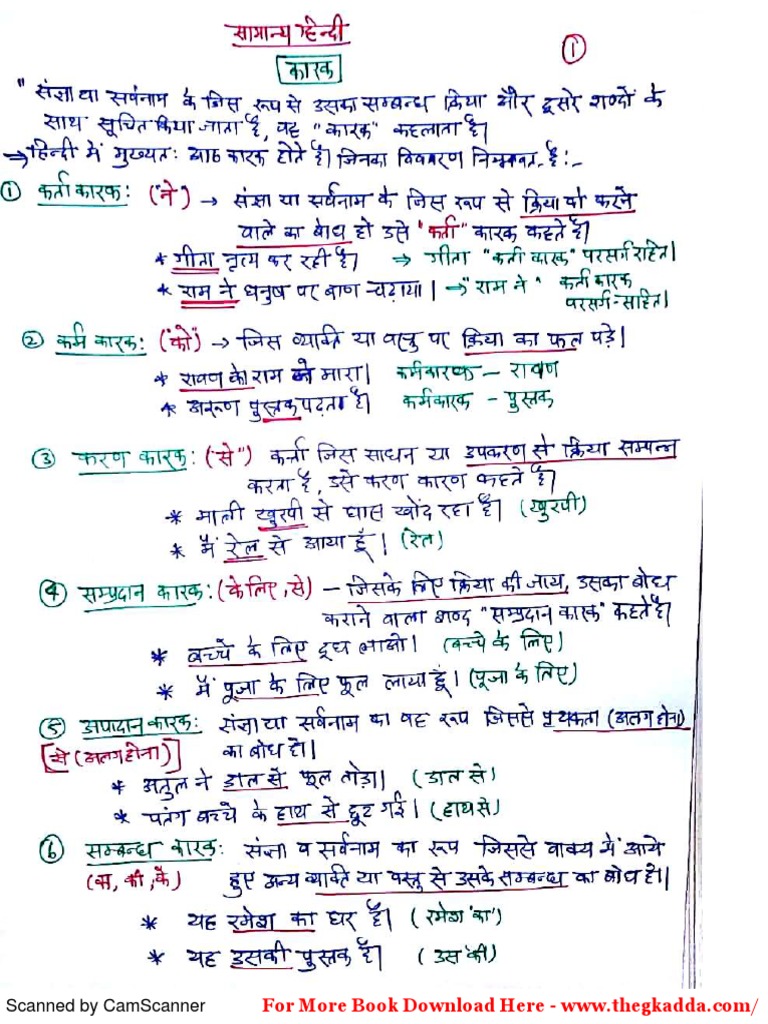 सामान्य हिन्दी
①
कारक
"संज्ञा या सर्वनाम के जिस रूप से उसका सम्बन्ध क्रिया और दूसरे शब्दों के
साथ सूचित किया जाता है, वह "कारक" कहलाता है।
⇒ हिन्दी में मुख्यतः आठ कारक होते हैं। जिनका विवरण निम्नवत् है:-
① कर्ता कारक: ("ने") → संज्ञा या सर्वनाम के जिस रूप से क्रिया को करने
वाले का बोध हो उसे "कर्ता" कारक कहते हैं।
* गीता नृत्य कर रही है। ⇒ गीता "कर्ता कारक" परसर्ग रहित।
* राम ने धनुष पर बाण चढ़ाया। → "राम ने" कर्ता कारक
परसर्ग-सहित।
② कर्म कारक: ("को") → जिस व्यक्ति या वस्तु पर क्रिया का फल पड़े।
* रावण को राम ने मारा। कर्मकारक – रावण
* अरूण पुस्तक पढ़ता है। कर्मकारक - पुस्तक
③ करण कारक: ("से") कर्त्ता जिस साधन या उपकरण से क्रिया सम्पन्न
करता है, उसे करण कारण कहते है।
* माली खुरपी से घास खोंद रहा है। (खुरपी)
* मैं रेल से आया हूँ। (रेल)
④ सम्प्रदान कारक: (के लिए, से) – जिसके लिए क्रिया की जाय, उसका बोध
कराने वाला शब्द "सम्प्रदान कारक" कहते है।
* बच्चे के लिए दूध लाओ। (बच्चे के लिए)
* मैं पूजा के लिए फूल लाया हूँ। (पूजा के लिए)
⑤ अपादान कारक: संज्ञा या सर्वनाम का वह रूप जिससे पृथकता (अलग होना)
[से (अलग होना)] का बोध हो।
* अतुल ने डाल से फूल तोड़ा। (डाल से)
* पतंग बच्चे के हाथ से छूट गई। (हाथ से)
⑥ सम्बन्ध कारक: संज्ञा व सर्वनाम का रूप जिससे वाक्य में आये
(का, की, के) हुए अन्य व्यक्ति या वस्तु से उसके सम्बन्ध का बोध हो।
* यह रमेश का घर है। (रमेश 'का')
* यह उसकी पुस्तक है। (उस 'की')
Scanned by CamScanner For More Book Download Here - www.thegkadda.com/